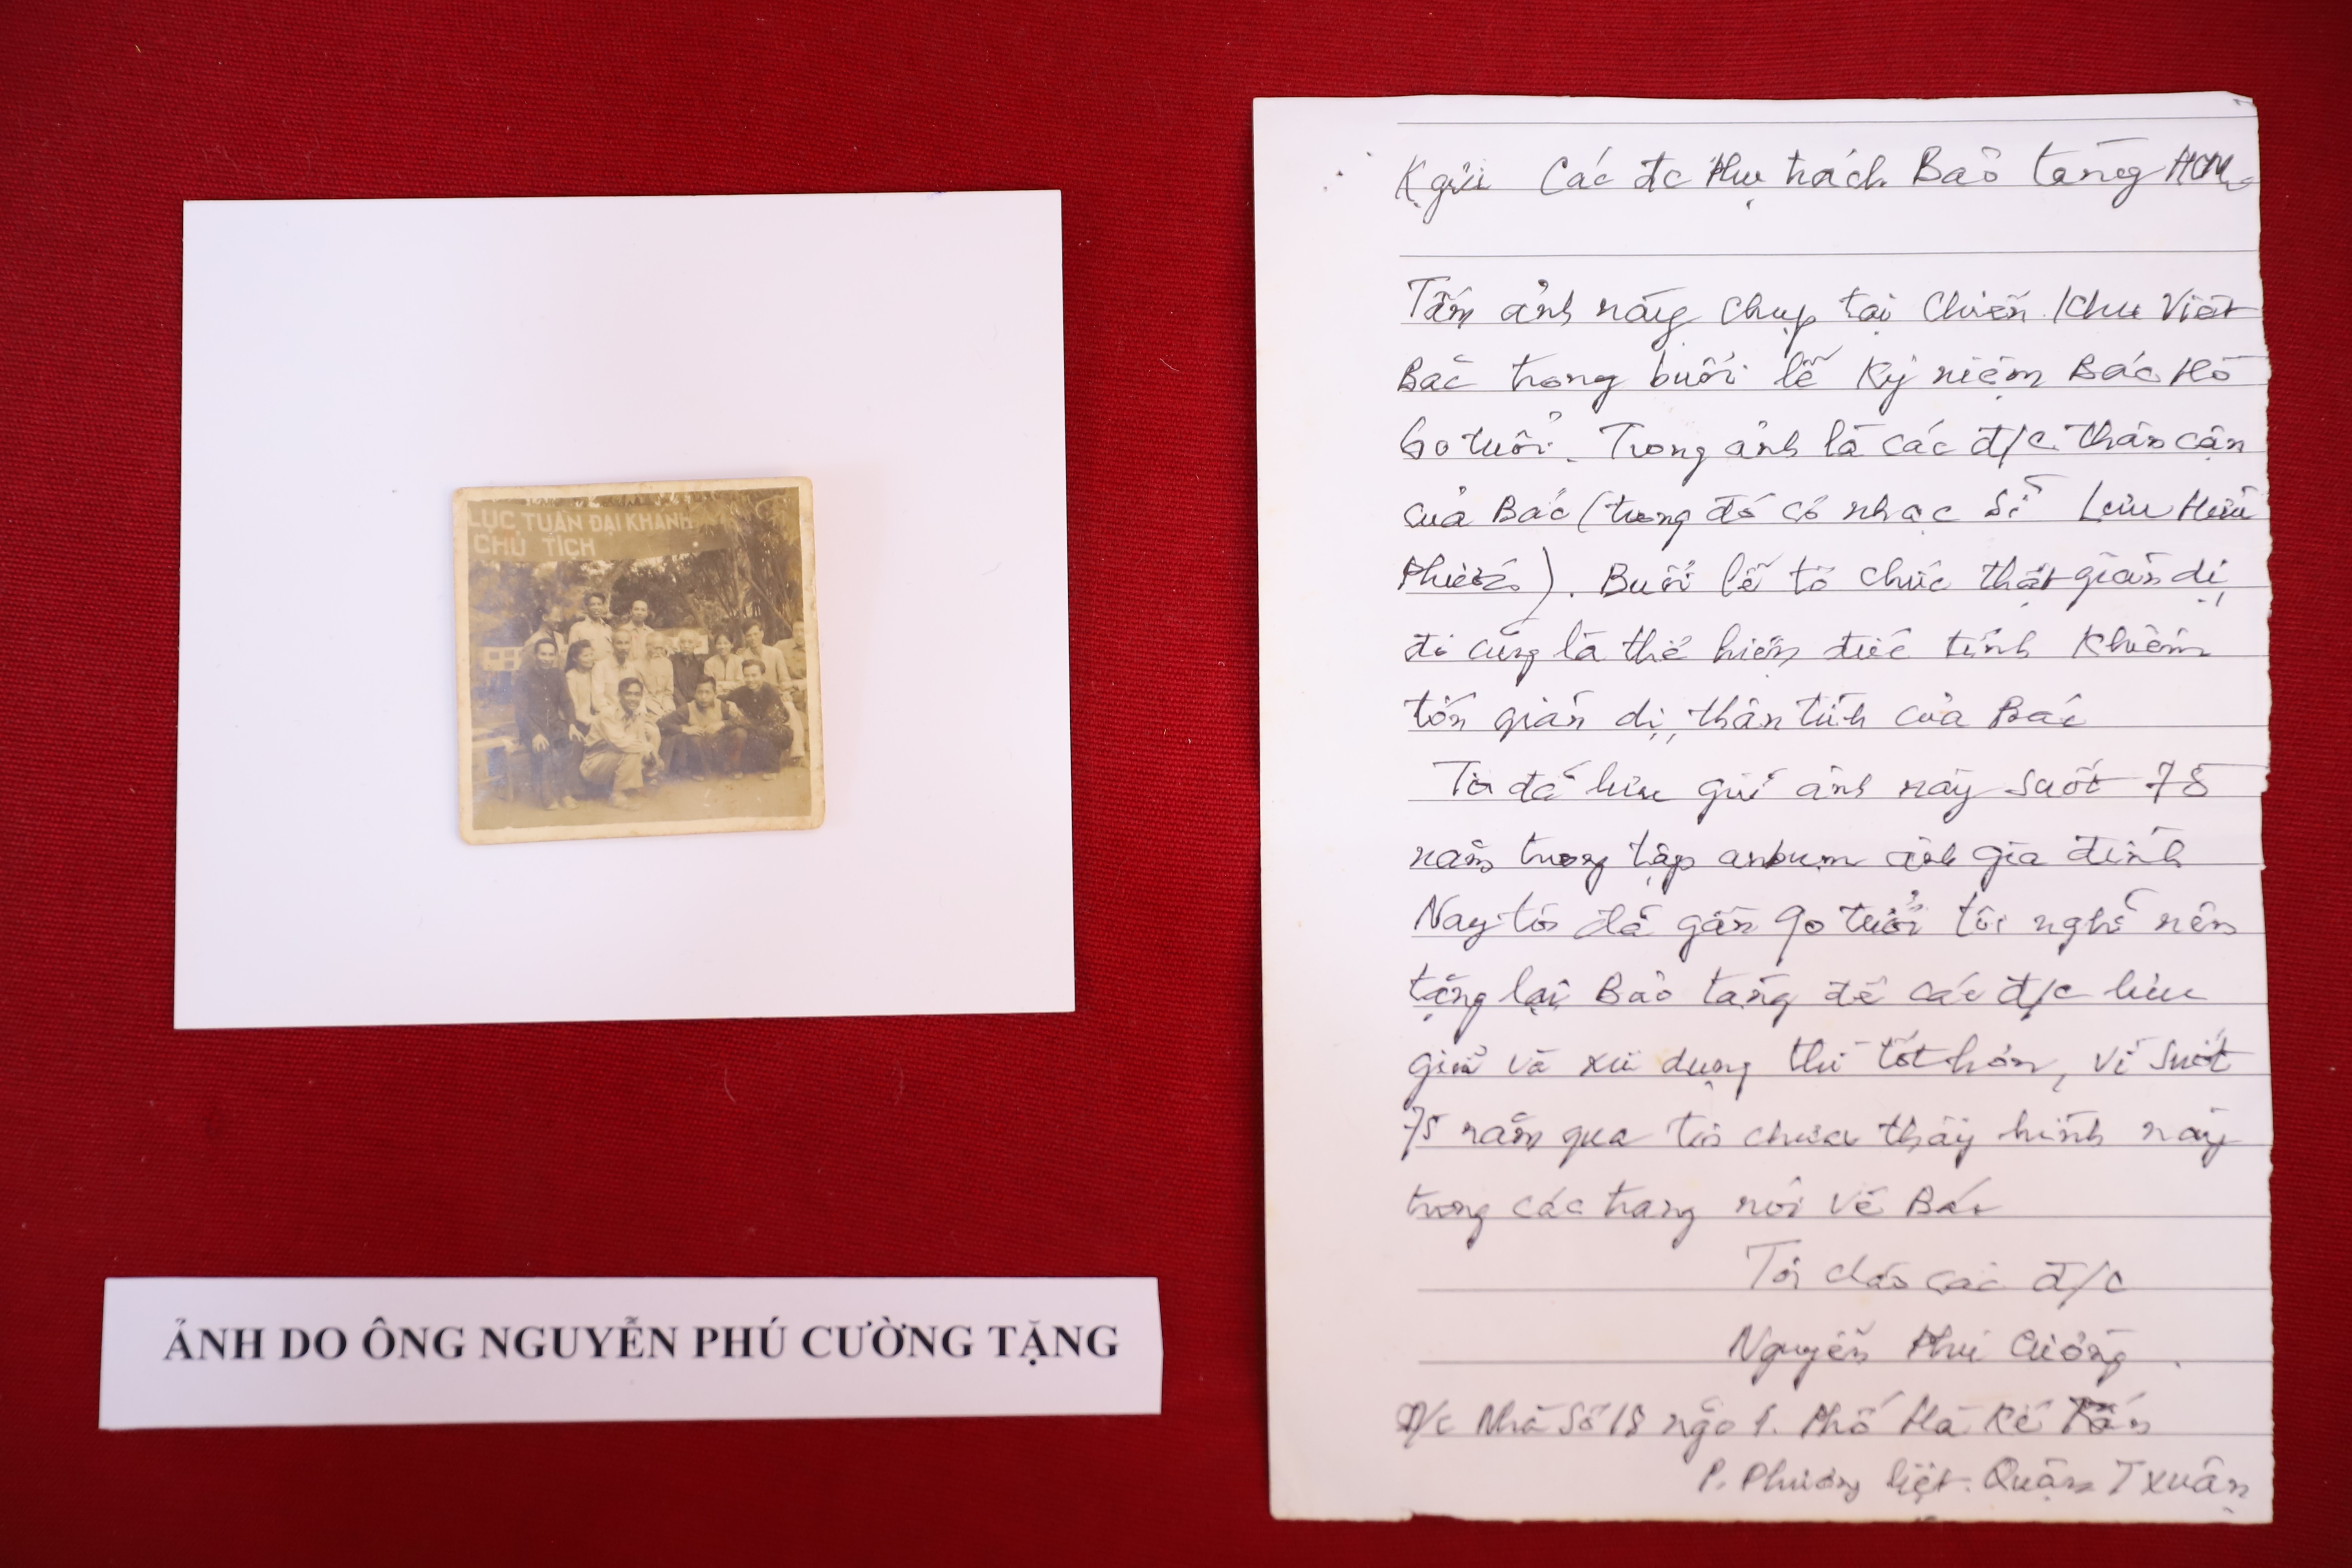 LỤC TUẦN ĐẠI KHÁNH
CHỦ TỊCH
ẢNH DO ÔNG NGUYỄN PHÚ CƯỜNG TẶNG
K gửi Các đc Phụ trách Bảo tàng HCM
Tấm ảnh này chụp tại Chiến Khu Việt
Bắc trong buổi lễ Kỷ niệm Bác Hồ
60 tuổi. Trong ảnh là các đ/c thân cận
của Bác (trong đó có nhạc sĩ Lưu Hữu
Phước). Buổi lễ tổ chức thật giản dị,
đó cũng là thể hiện đức tính Khiêm
tốn giản dị, thân tình của Bác
Tôi đã lưu giữ ảnh này suốt 75
năm trong tập anbum ảnh gia đình
Nay tôi đã gần 90 tuổi tôi nghĩ nên
tặng lại Bảo tàng để các đ/c lưu
giữ và xử dụng thì tốt hơn, vì suốt
75 năm qua tôi chưa thấy hình này
trong các trang nói về Bác
Tôi chào các đ/c
Nguyễn Phú Cường.
Đ/c Nhà Số 18 ngõ 1. Phố Hà Kế Tấn
P. Phương Liệt. Quận T Xuân